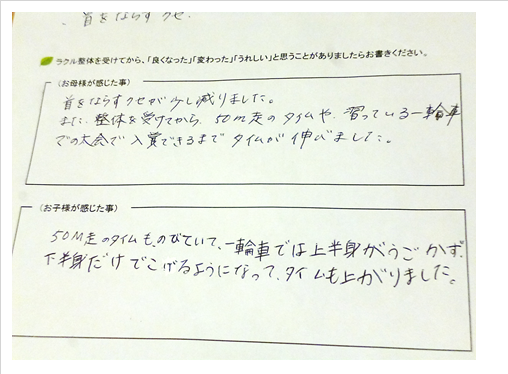 首をならすクセ.
ラクル整体を受けてから、「良くなった」「変わった」「うれしい」と思うことがありましたらお書きください。
（お母様が感じた事）
首をならすクセが少し減りました。
また、整体を受けてから、50m走のタイムや、習っている一輪車
での大会で入賞できるまでタイムが伸びました。
（お子様が感じた事）
50M走のタイムも、のびていて、一輪車では上半身がうごかず、
下半身だけでこげるようになって、タイムも上がりました。